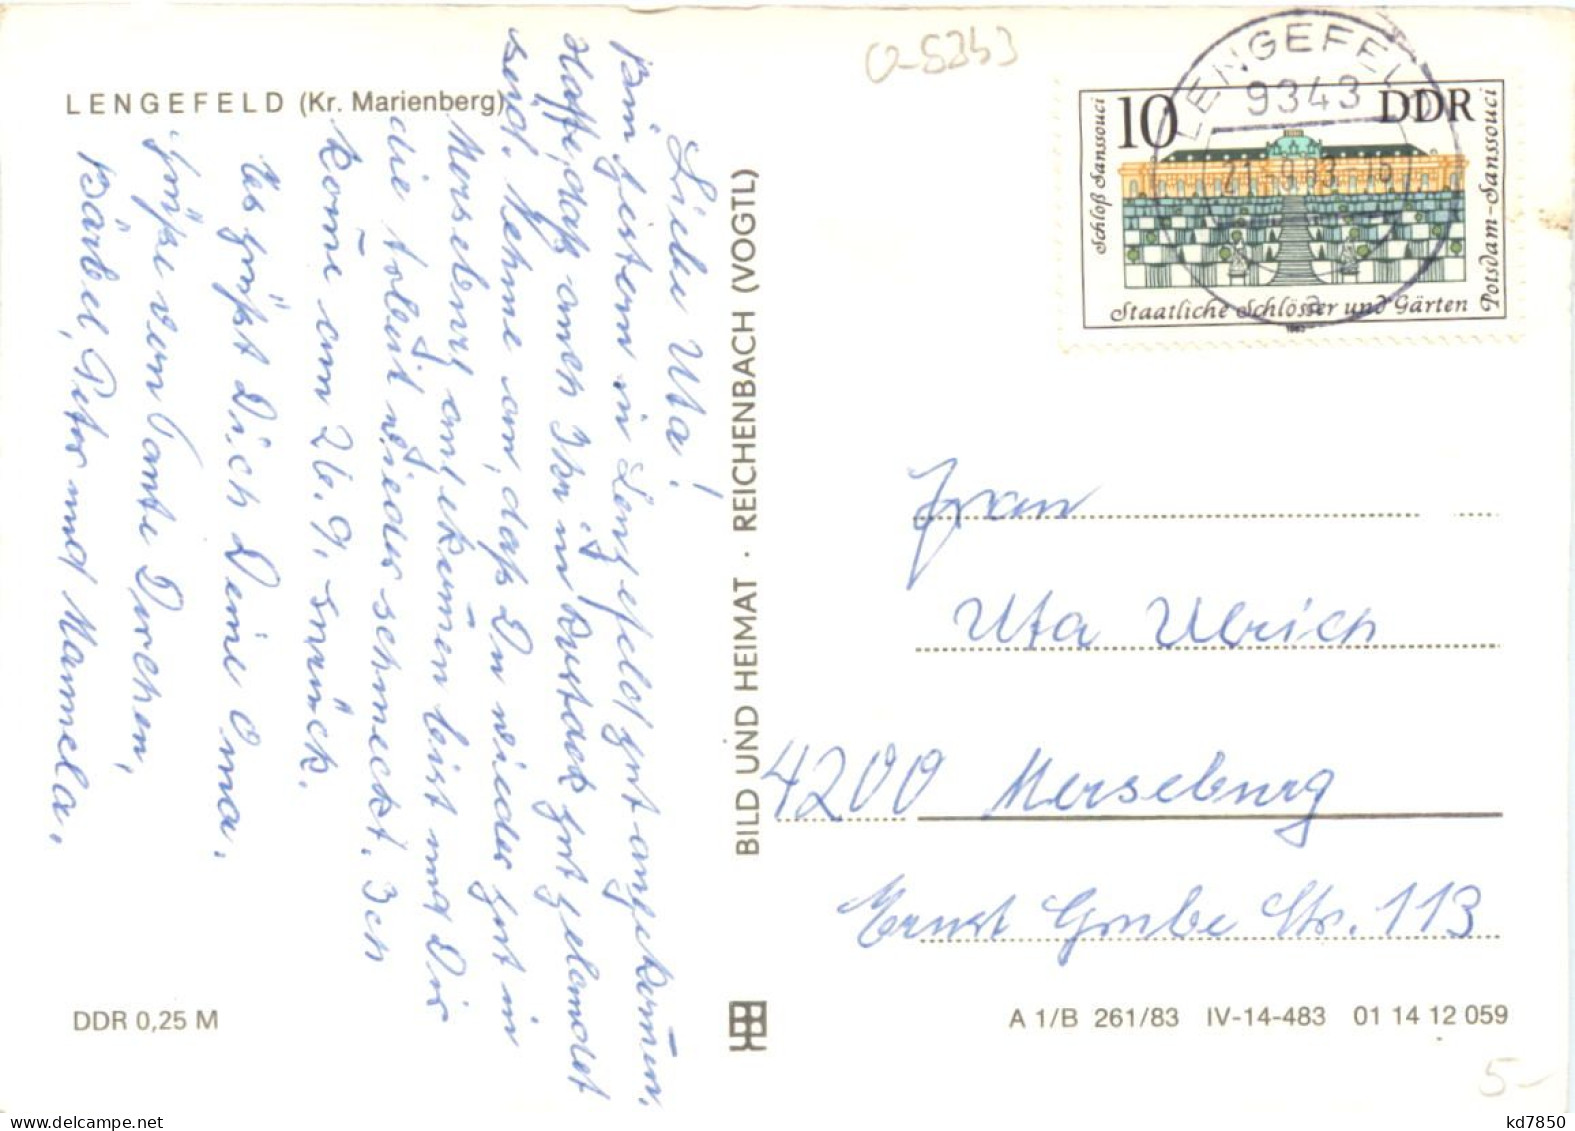 LENGEFELD (Kr. Marienberg)
Liebe Uta!
Bin gestern in Lengefeld gut angekom̄en.
Hoffe, daß auch Ihr in gut gelandet
seid. Nehme an, daß Du wieder gut in
Merseburg angekom̄en bist und Dir
die Arbeit wieder schmeckt. Ich
kom̄e am 26. 9. zurück.
Es grüßt Dich Deine Oma.
Grüße von Tante Dorchen,
Bärbel, Peter und Manuela.
BILD UND HEIMAT · REICHENBACH (VOGTL)
DDR 0,25 M
LENGEFELD
9343
21.-9.83
10 DDR
Schloß Sanssouci
Potsdam-Sanssouci
Staatliche Schlösser und Gärten
1983
Frau
Uta Ulrich
4200 Merseburg
Ernst Grube Str. 113
A 1/B 261/83 IV-14-483 01 14 12 059
5-
delcampe.net
kd7850